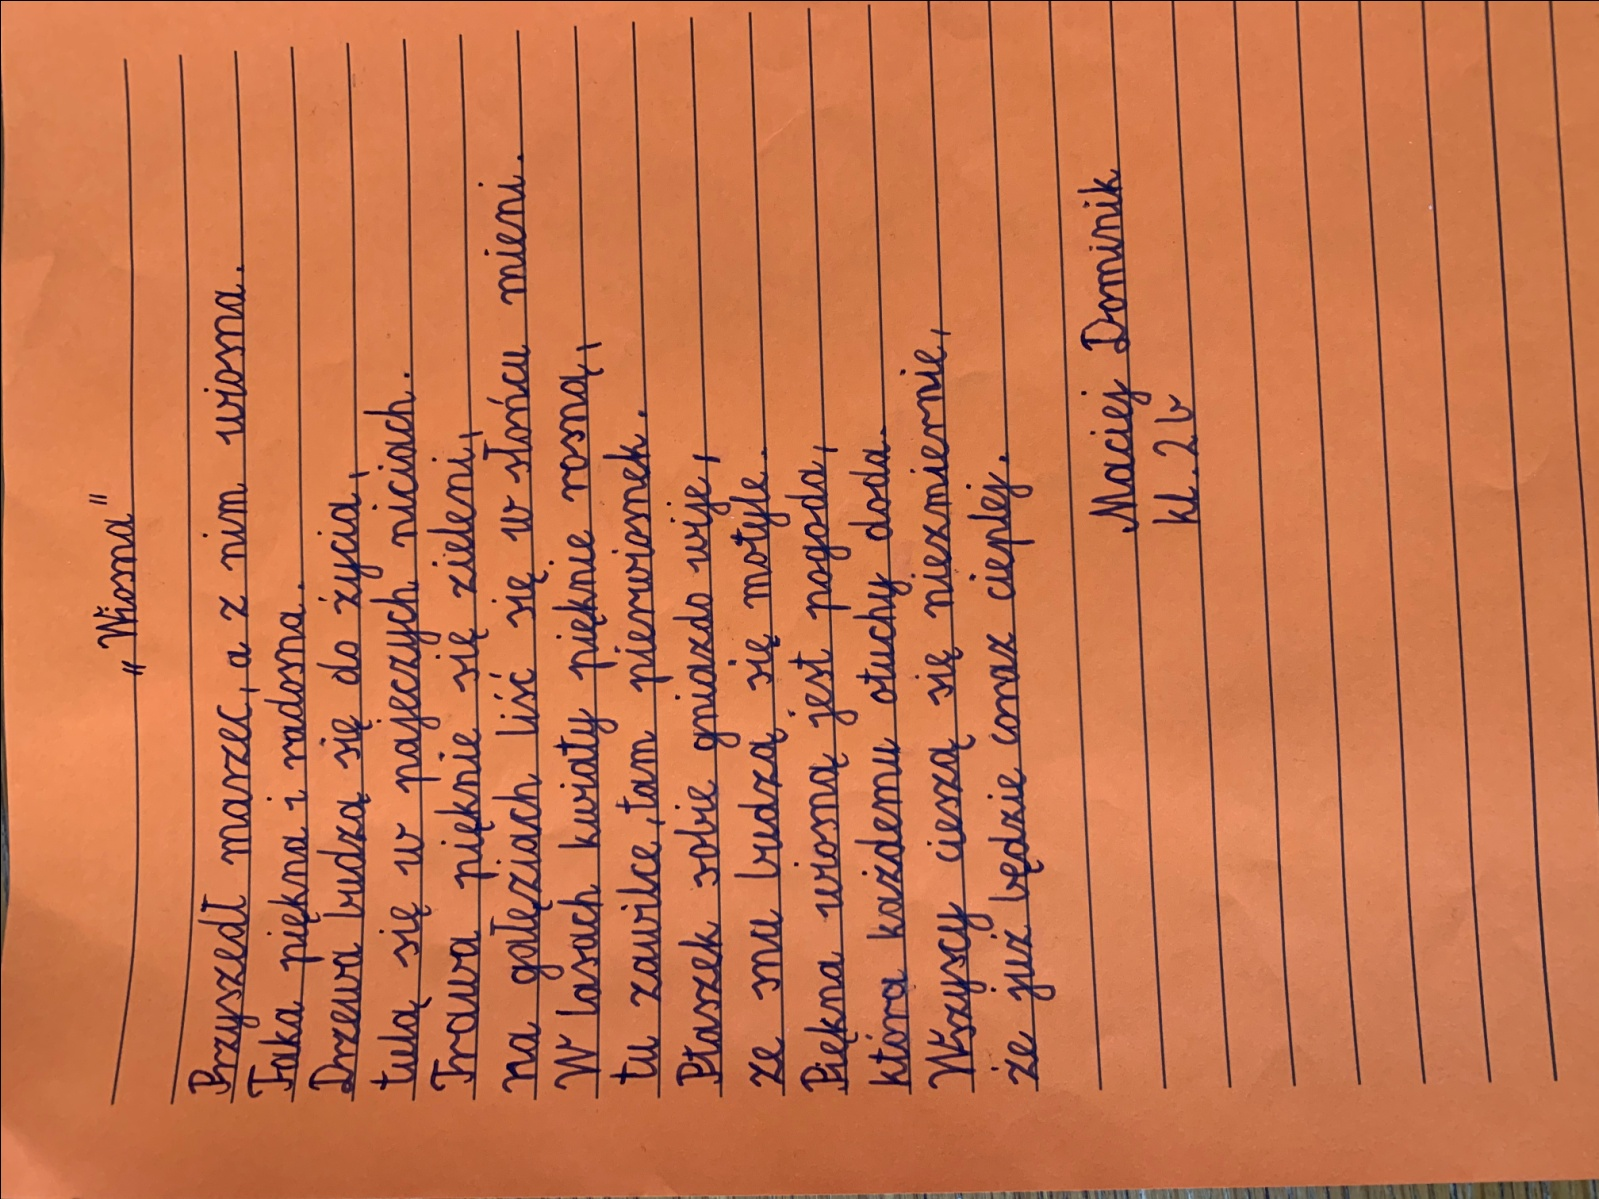 „Wiosna"
Przyszedł marzec, a z nim wiosna.
Taka piękna i radosna.
Drzewa budzą się do życia,
tulą się w pajęczych niciach.
Trawa pięknie się zieleni,
na gałęziach liść się w słońcu mieni.
W lasach kwiaty pięknie rosną,
tu zawilce, tam pierwiosnek.
Ptaszek sobie gniazdo wije,
ze snu budzą się motyle.
Piękna wiosną jest pogoda,
która każdemu otuchy doda.
Wszyscy cieszą się niezmiernie,
że już będzie coraz cieplej.
Maciej Dominik
kl. 2b